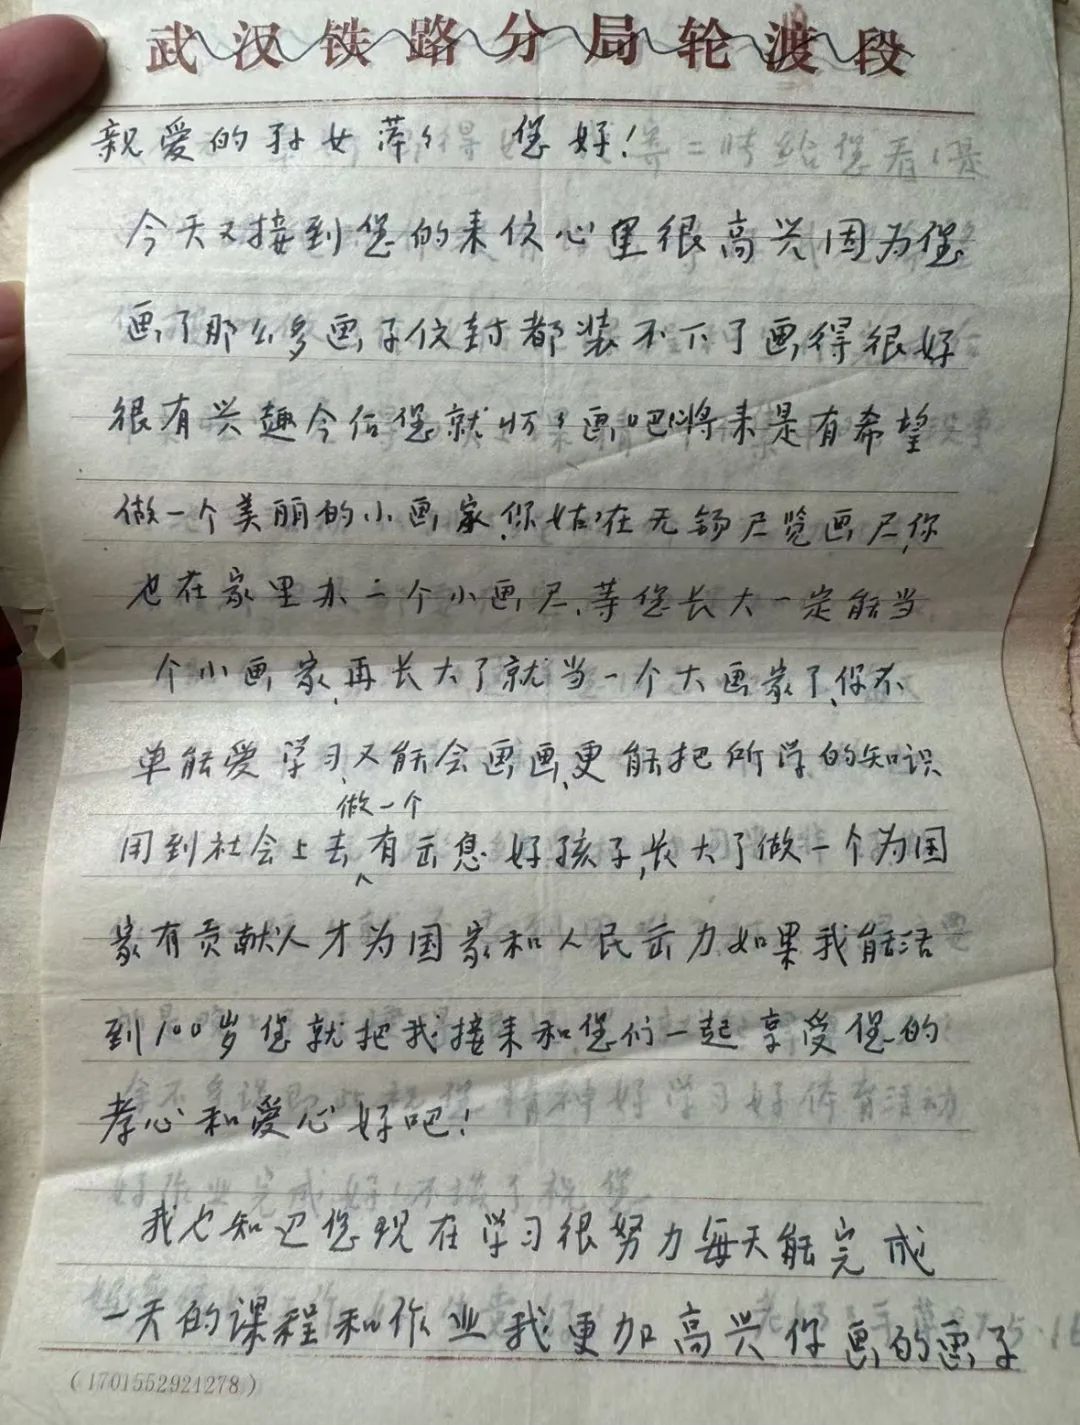 武汉铁路分局轮渡段
亲爱的孙女萍々 您好!
今天又接到您的来伩心里很高兴因为您
画了那么多画子伩封都装不下了画得很好
很有兴趣今后您就好々画吧!将来是有希望
做一个美丽的小画家,你姑々在无锡尸览画尸,你
也在家里办一个小画尸、等您长大一定能当
个小画家,再长大了就当一个大画家了,你不
单能爱学习,又能会画画,更能把所学的知识
做一个
用到社会上去有出息好孩子,长大了做一个为国
家有贡献人才为国家和人民出力如果我能活
到100岁您就把我接来和您们一起享受您的
孝心和爱心好吧!
我也知辺您现在学习很努力每天能完成
一天的课程和作业我更加高兴你画的画子
(1701552921278)